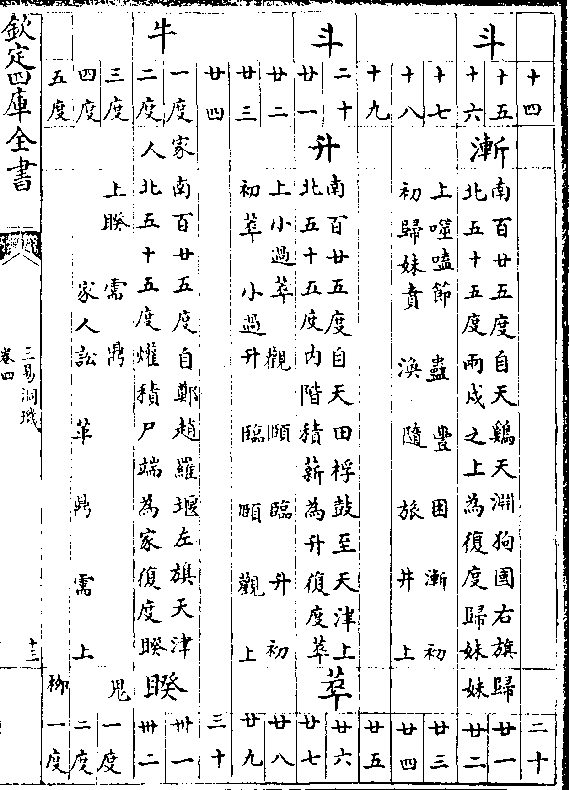 十四 二十
斗 漸
十五 南百廿五度自天鷄天淵狗國右旗歸 廿一
十六 北五十五度兩戍之上為復度歸妹妹 廿二
十七 上噬嗑節 蠱 豐 困 漸 初 廿三
十八 初歸妹賁 渙 隨 旅 井 上 廿四
十九 廿五
斗 升
二十 南百廿五度自天田桴鼓至天津上 廿六
廿一 北五十五度内階積薪為升復度萃 廿七
萃
廿二 上小過萃 觀 頤 臨 升 初 廿八
廿三 初萃 小過升 臨 頤 觀 上 廿九
廿四 三十
牛
一度 家 南百廿五度自鄭趙羅堰左旗天津 卅一
二度 人 北五十五度爟積尸端為家復度睽 卅二
睽
三度 上睽 需 鼎 鬼 一度
四度 家人訟 革 鼎 需 上 二度
五度 柳 一度
欽定四庫全書
三易洞璣
卷四
十三